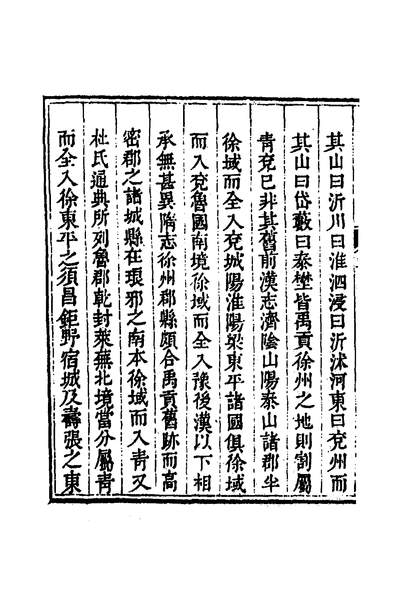 其山曰沂川曰淮泗浸曰沂沭河東曰兗州而
其山曰岱藪曰泰壄皆禹貢徐州之地則割屬
青兗已非其舊前漢志濟陰山陽泰山諸郡半
徐域而全入兗城陽淮陽梁東平諸國俱徐域
而入兗魯國南境徐域而全入豫後漢以下相
承無甚異隋志徐州郡縣頗合禹貢舊跡而高
密郡之諸城縣在琅邪之南本徐域而入青又
杜氏通典所列魯郡乾封萊蕪北境當分屬青
而全入徐東平之須昌鉅野宿城及壽張之東